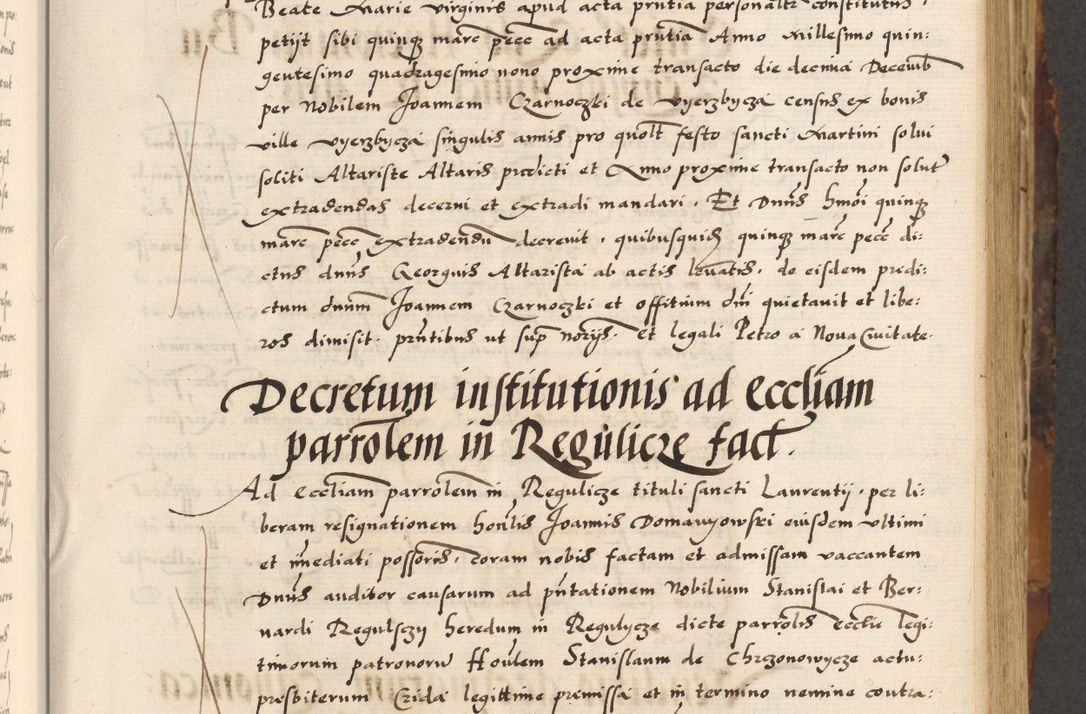 Beate Marie virginis apud acta pntia personaltr constitutus,
petijt sibi quinq marc pecc ad acta pntia Anno Millesimo quin:
gentesimo quadragesimo nono proxime transacto die decima Decemb
per Nobilem Joannem Czarnoczki de vyerzbycza census ex bonis
ville vyerzbycza singulis annis pro quolt festo sancti Martini solui
soliti Altariste Altaris predicti et Anno proxime transacto non solut
extradendas decerni et extradi mandari. Et Dnus hmoi quinq
marc pecc extradendu decreuit, quibusquid quinq marc pecc di:
ctus dnus Georgius Altarista ab actis leuatis, de eisdem predi:
ctum dnum Joannem Czarnoczki et offitium dni quietauit et libe:
ros dimisit. pntibus ut sup norijs. Et legali Petro a Noua Ciuitate.
Decretum institutionis ad eccliam
parrolem in Regulicze fact.
Ad eccliam parrolem in Regulicze tituli sancti Laurentij, per li:
beram resignationem honlis Joannis Domawyowski eiusdem vltimi
et imediati possoris, coram nobis factam et admissam vaccantem
Dnus auditor causarum ad pntationem Nobilium Stanislai et Ber:
nardi Regulsczy heredum in Regulycze dicte parrolis ecclie legi:
timorum patronoru Honlem Stanislaum de Chrzonowycze actu:
presbiterum Crida legittime premissa et in termino nemine contra: